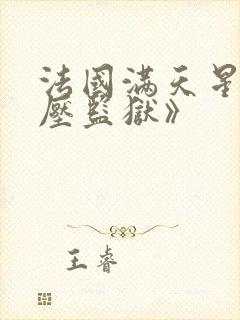 法國满天星
壓監獄》
王睿